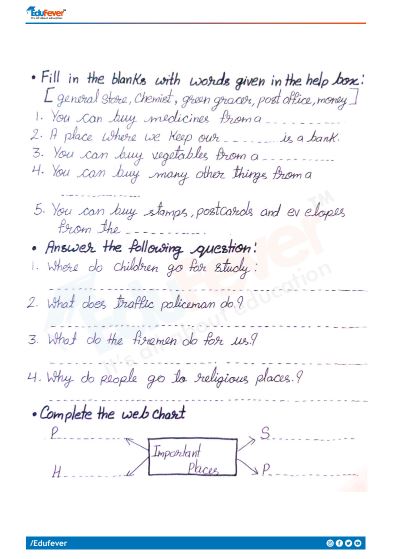 Edufever
It's all about education
• Fill in the blanks with words given in the help box:
[general store, Chemist, green gracer, post office, money]
1. You can buy medicines from a ____________
2. A place where we keep our _________ is a bank.
3. You can buy vegetables from a ____________
4. You can buy many other things from a
____________
5. You can buy stamps, postcards and ev elopes
from the ____________.
• Answer the following question:
1. Where do children go for study:
2. What does traffic policeman do?
3. What do the firemen do for us?
4. Why do people go to religious places.?
• Complete the web chart
P____________ S.____________
Important
Places
H____________ P.____________
Edufever
TM
It's all about education
/Edufever